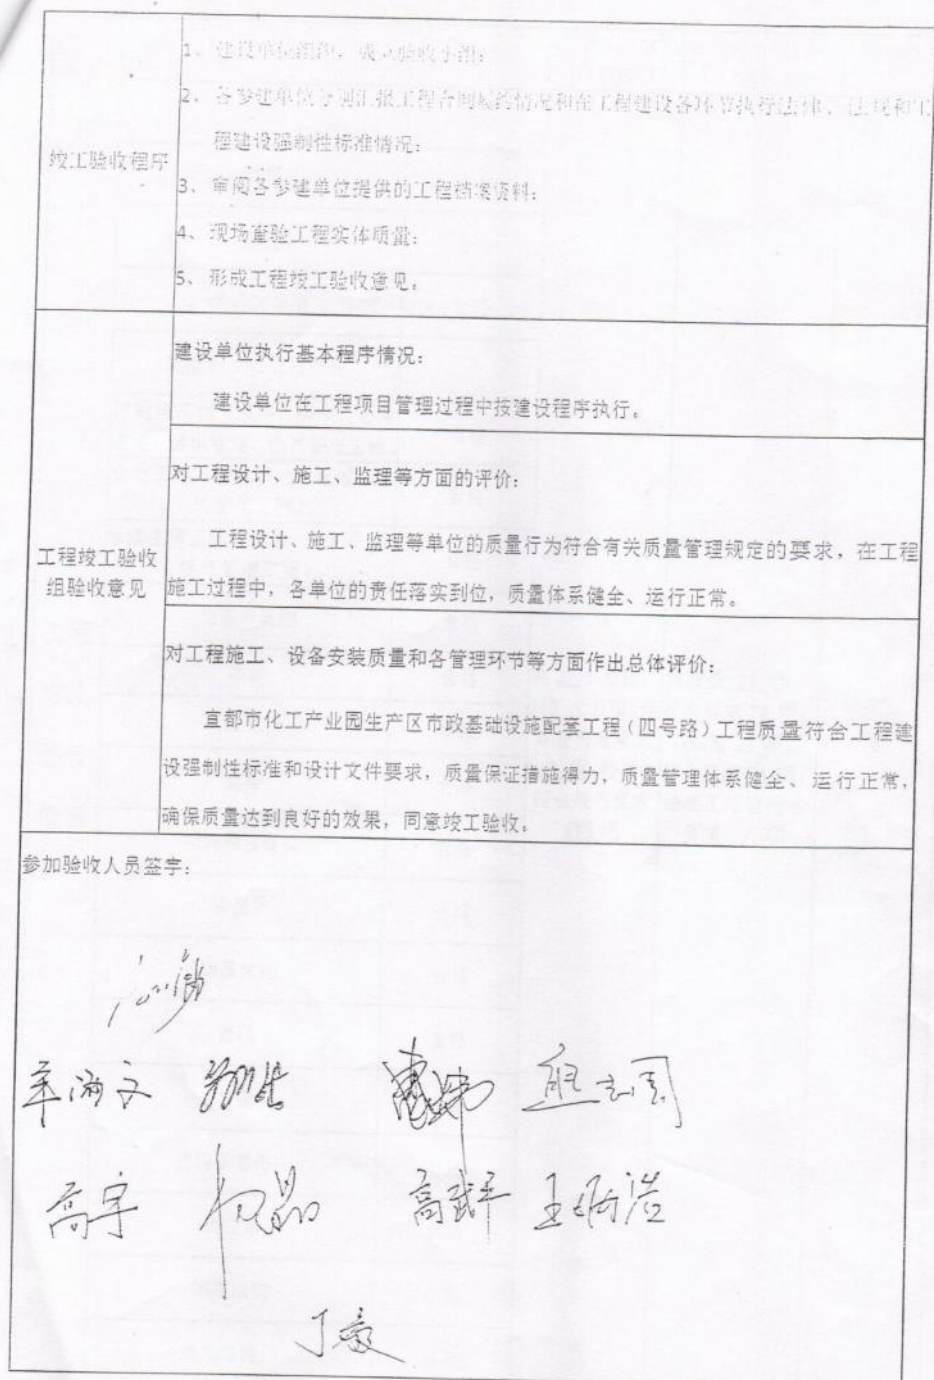 竣工验收程序
1、建设单位组织，成立验收小组；
2、各参建单位分别汇报工程合同履约情况和在工程建设各环节执行法律、法规和工
程建设强制性标准情况；
3、审阅各参建单位提供的工程档案资料；
4、现场查验工程实体质量；
5、形成工程竣工验收意见。
工程竣工验收
组验收意见
建设单位执行基本程序情况：
建设单位在工程项目管理过程中按建设程序执行。
对工程设计、施工、监理等方面的评价：
工程设计、施工、监理等单位的质量行为符合有关质量管理规定的要求，在工程
施工过程中，各单位的责任落实到位，质量体系健全、运行正常。
对工程施工、设备安装质量和各管理环节等方面作出总体评价：
宜都市化工产业园生产区市政基础设施配套工程（四号路）工程质量符合工程建
设强制性标准和设计文件要求，质量保证措施得力，质量管理体系健全、运行正常，
确保质量达到良好的效果，同意竣工验收。
参加验收人员签字：
高宇 高武平
丁毅